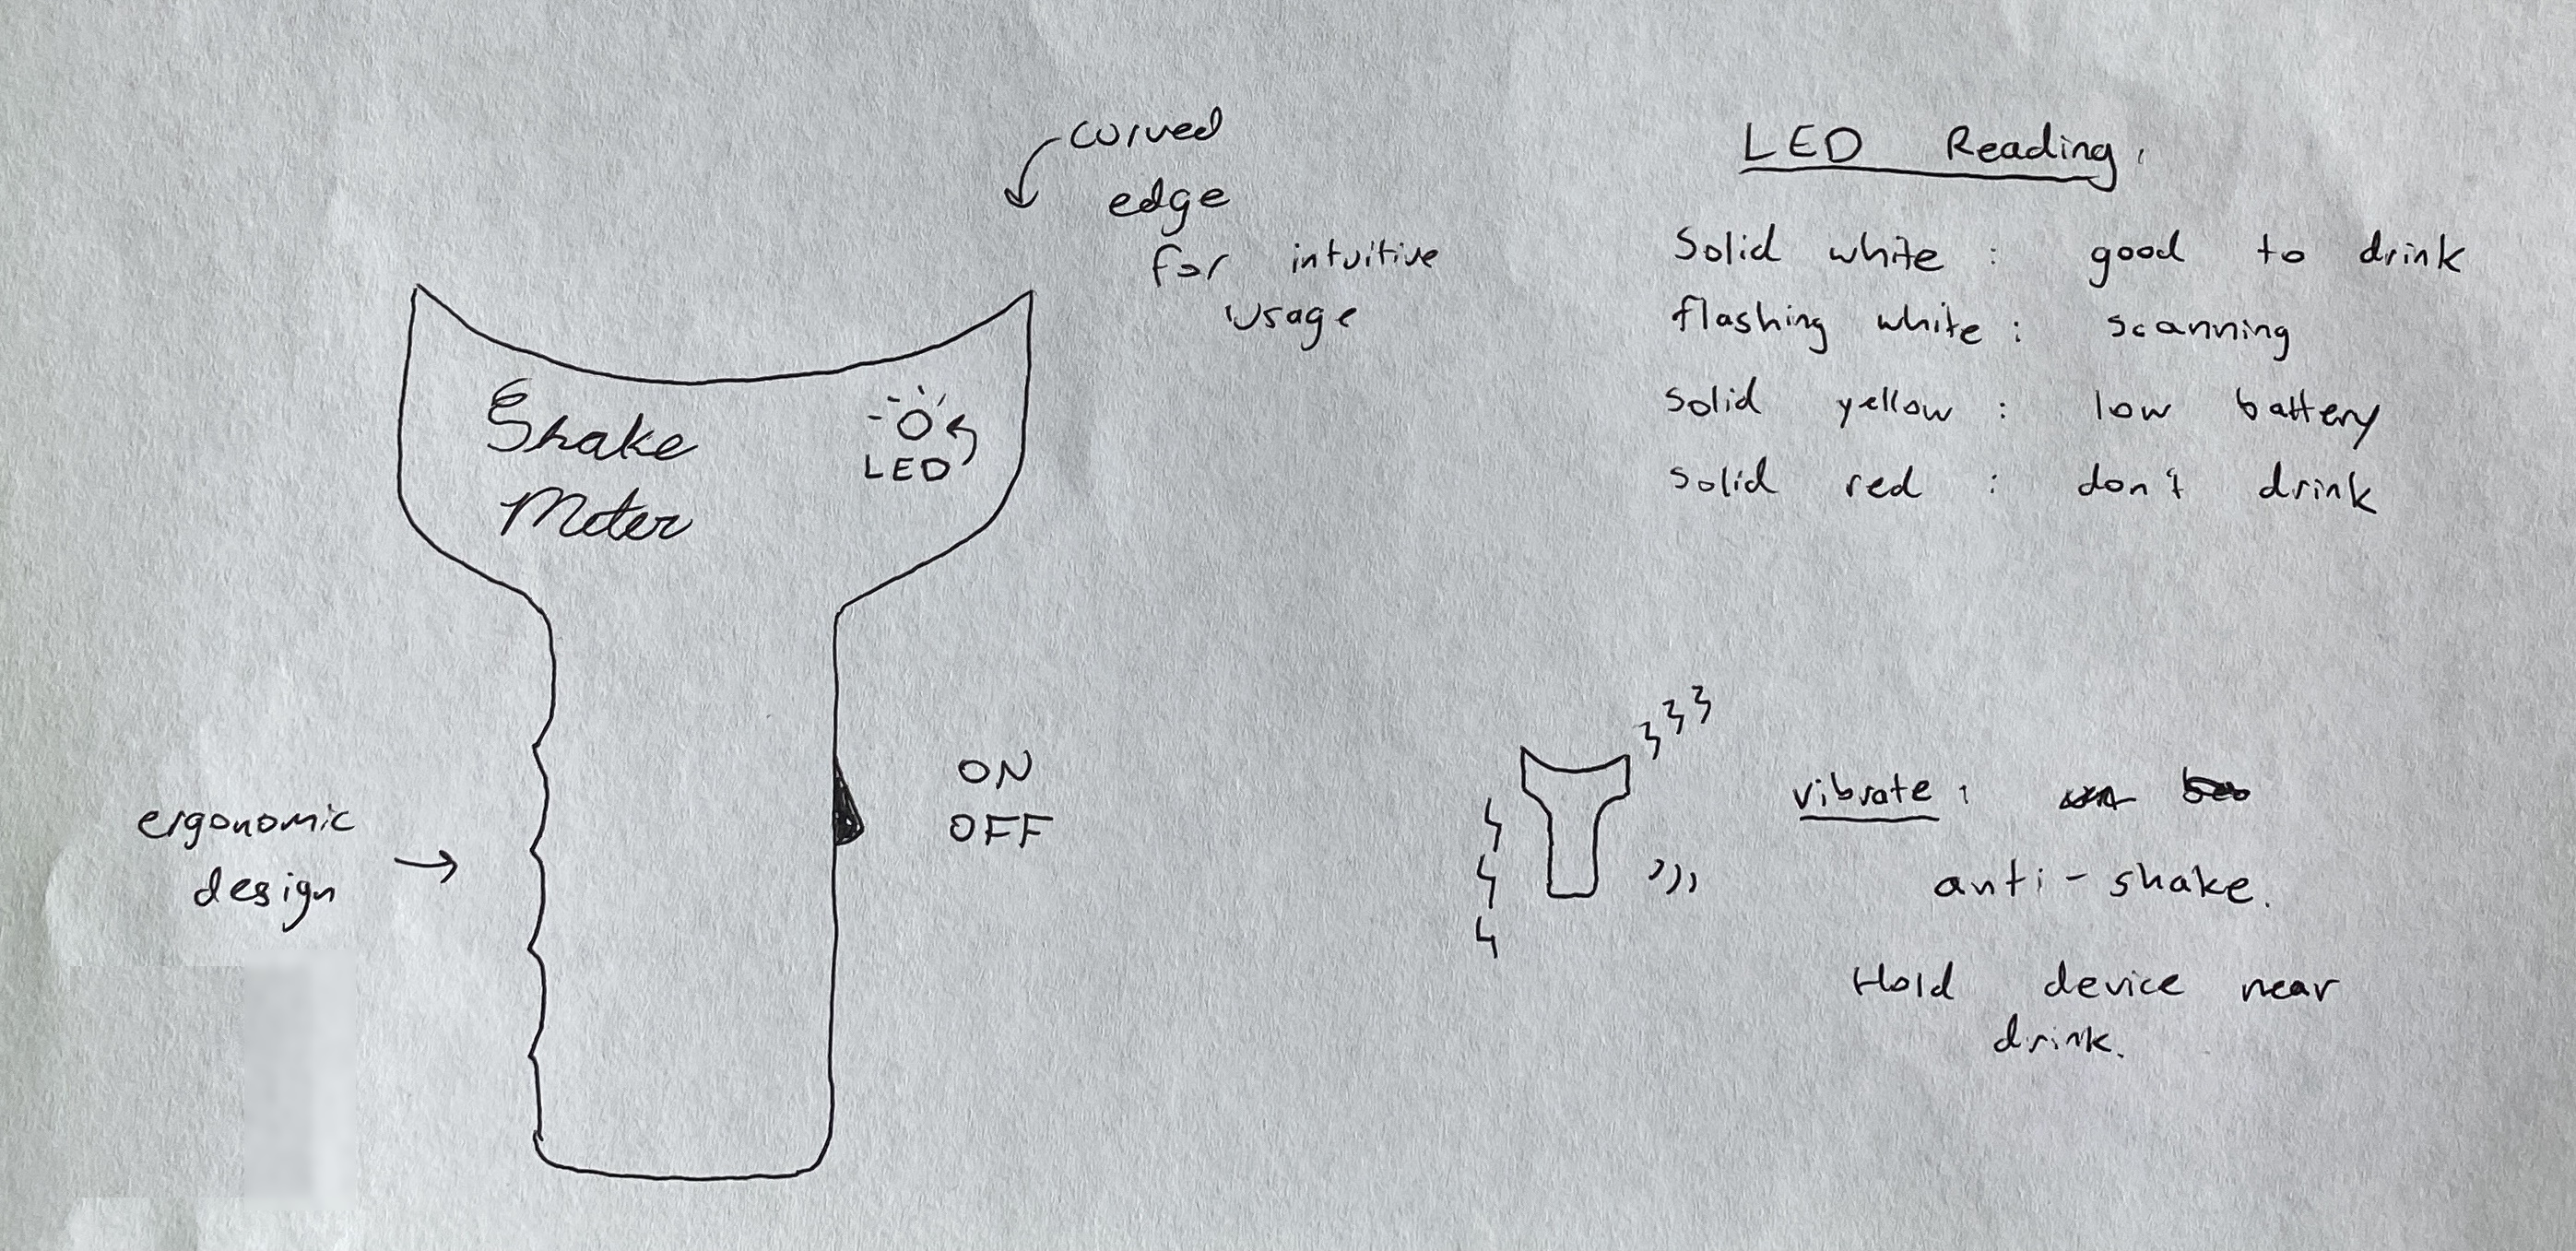 curved
edge
for intuitive
usage
Shake
Meter
LED
ON
OFF
ergonomic
design
LED Reading:
Solid white : good to drink
flashing white : scanning
solid yellow : low battery
solid red : don't drink
vibrate :
anti-shake.
Hold device near
drink.